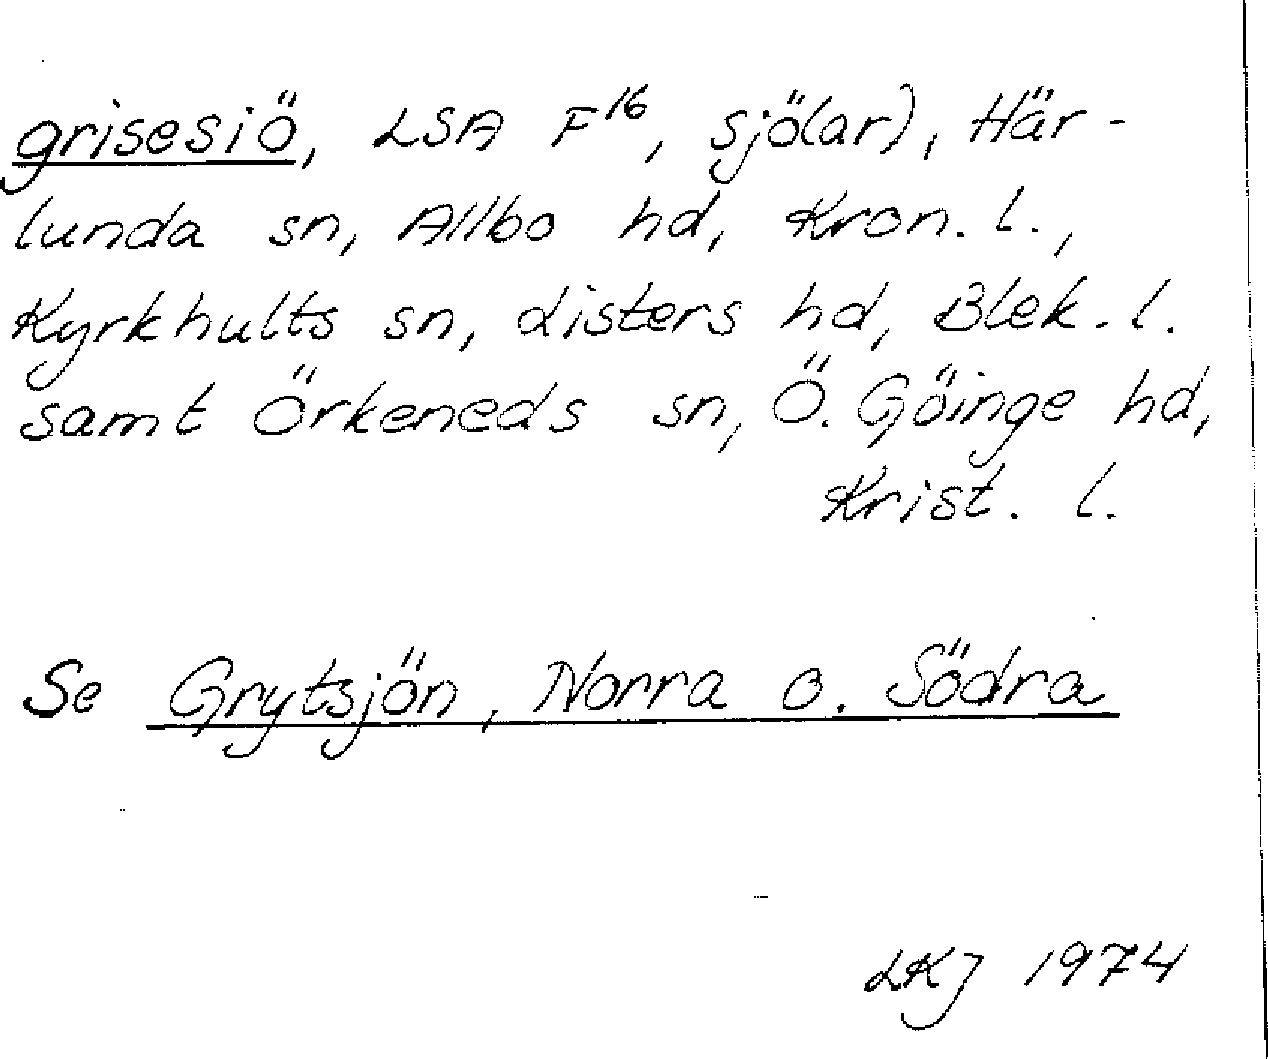 grisesiö, LSA F16, sjö(ar), Här-
lunda sn, Allbo hd, Kron. l.,
Kyrkhults sn, Listers hd, Blek. l.
samt Örkeneds sn, Ö. Göinge hd,
Krist. l.
Se Grytsjön, Norra o. Södra
LKJ 1974